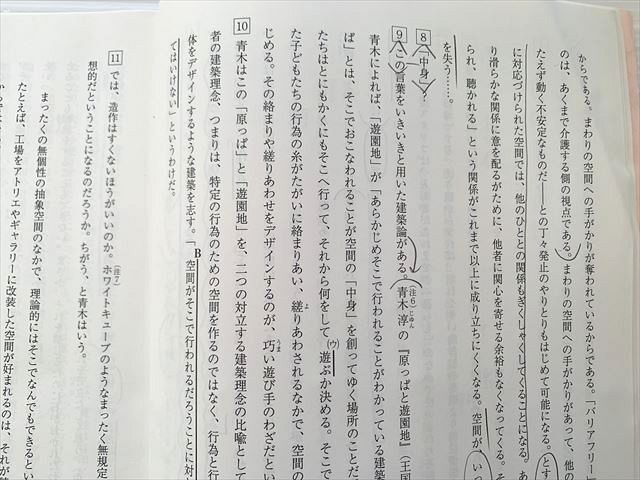 からである。まわりの空間への手がかりが奪われているからである。「バリアフリー」
のは、あくまで介護する側の視点である。まわりの空間への手がかりがあって、他の
たえず動く不安定なものだ――との丁々発止のやりとりもはじめて可能になる。とす
に対応づけられた空間では、他のひととの関係もぎくしゃくしてくることになる。あ
り滑らかな関係に意を配るがために、他者に関心を寄せる余裕もなくなってくる。そ
られ、聴かれる」という関係がこれまで以上に成り立ちにくくなる。空間が、「いつ
を失う……。
8 「中身」？
9 この言葉をいきいきと用いた建築論がある。(注6)青木淳じゅんの『原っぱと遊園地』（王国
青木によれば、「遊園地」が「あらかじめそこで行われることがわかっている建築
ば」とは、そこでおこなわれることが空間の「中身」を創ってゆく場所のことだ
たちはとにもかくにもそこへ行って、それから何をして(ウ)遊ぶか決める。そこで
た子どもたちの行為の糸がたがいに絡まりあい、縒よりあわされるなかで、空間の
じめる。その絡まりや縒りあわせをデザインするのが、巧うまい遊び手のわざだとい
10 青木はこの「原っぱ」と「遊園地」を、二つの対立する建築理念の比喩として
者の建築理念、つまりは、特定の行為のための空間を作るのではなく、行為と行
体をデザインするような建築を志す。「B空間がそこで行われるだろうことに対
てはいけない」というわけだ。
11 では、造作はすくないほうがいいのか。(注7)ホワイトキューブのようなまったく無規定
想的だということになるのだろうか。ちがう、と青木はいう。
まったくの無個性の抽象空間のなかで、理論的にはそこでなんでもできるとい
たとえば、工場をアトリエやギャラリーに改装した空間が好まれるのは、それが